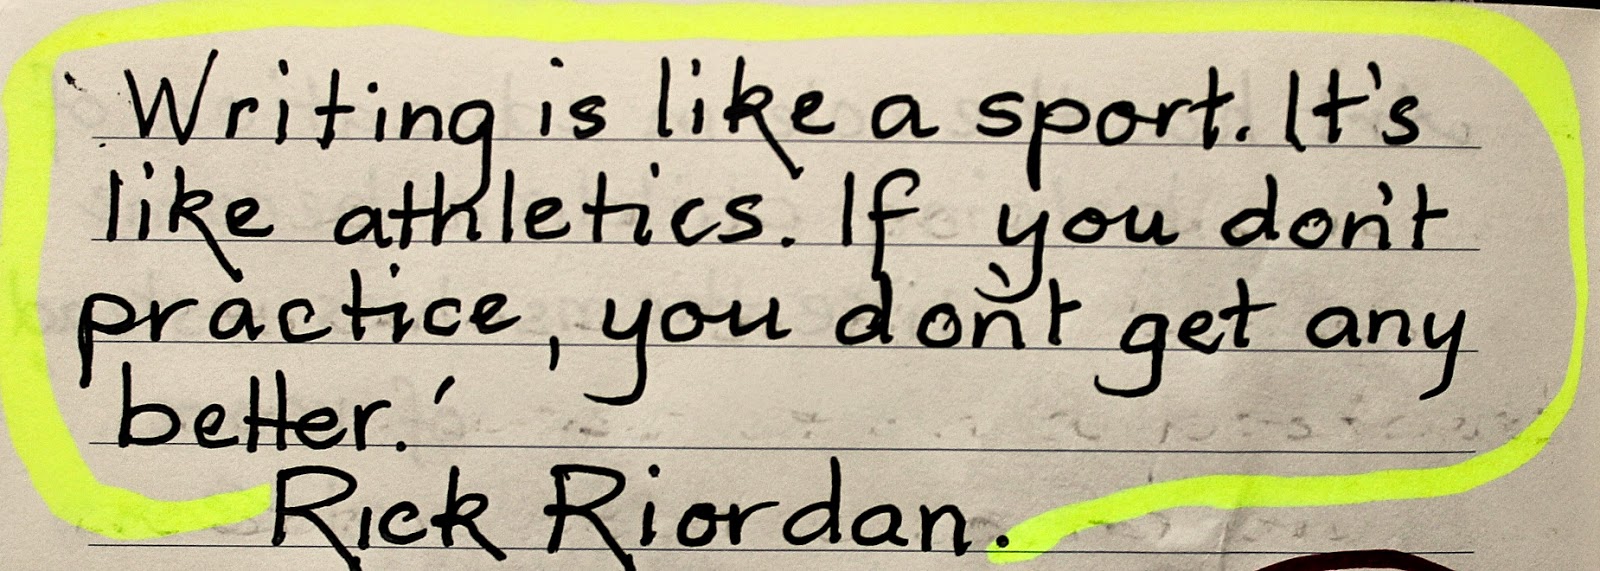 'Writing is like a sport. It's
like athletics. If you don't
practice, you don't get any
better.'
Rick Riordan.